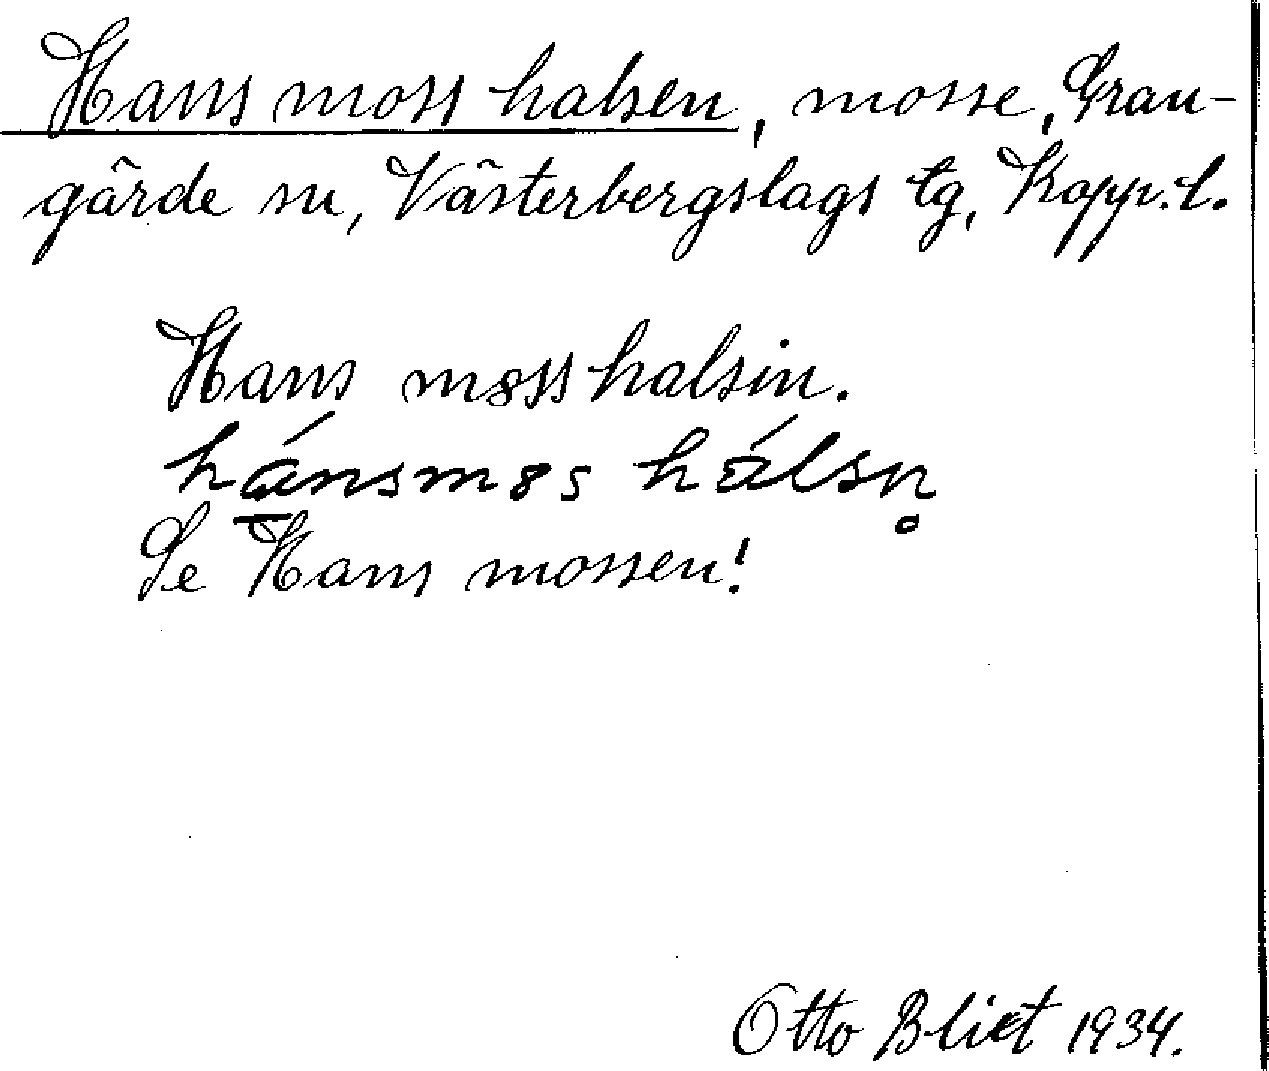 Hans moss halsen, mosse, Gran-
gärde sn, Västerbergslags tg, Kopp.l.
Hans møss halsin.
hánsmøs hálsn̥
Se Hans mossen!
Otto Blixt 1934.